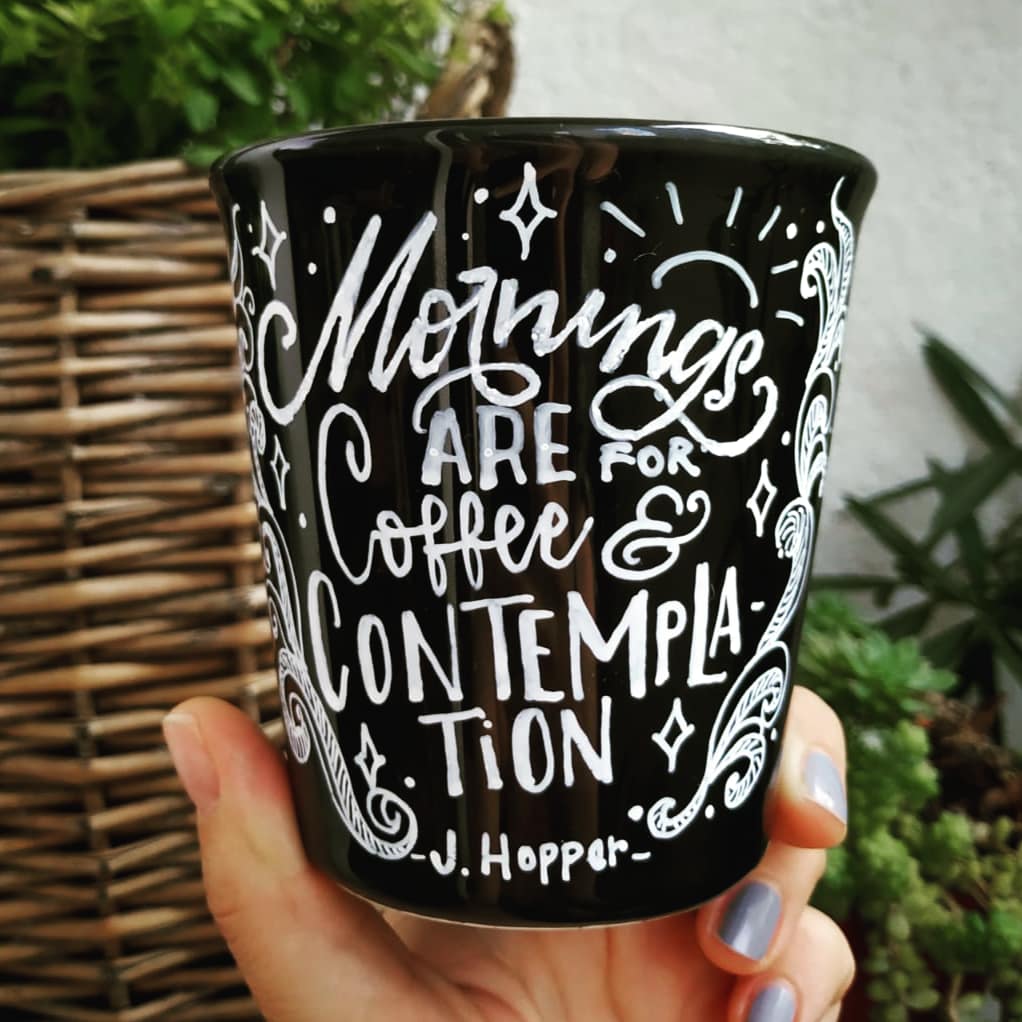 Mornings
ARE FOR
Coffee &
CONTEMPLA-
TiON
-J. Hopper-